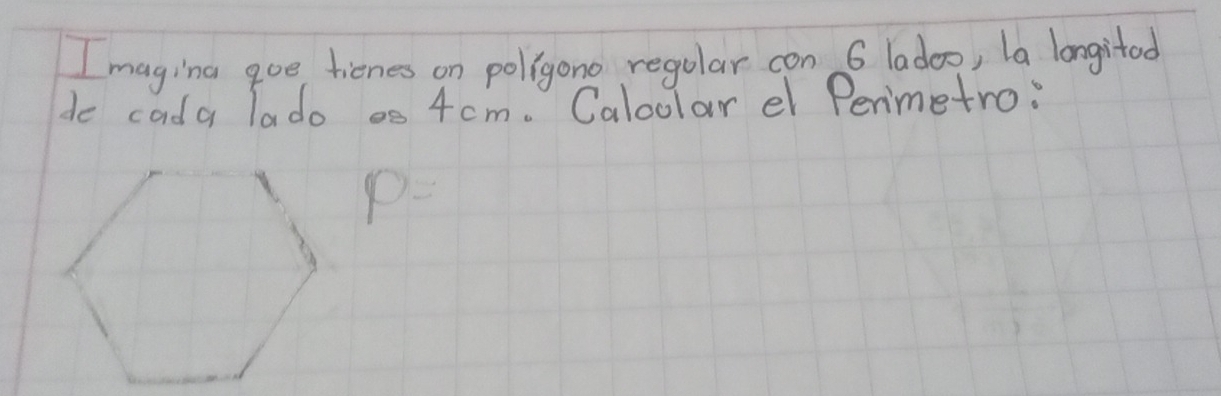 Imagina que tienes un polígono regular con 6 lados, la longitud
de cada lado es 4cm. Calcular el Perimetro:
P=